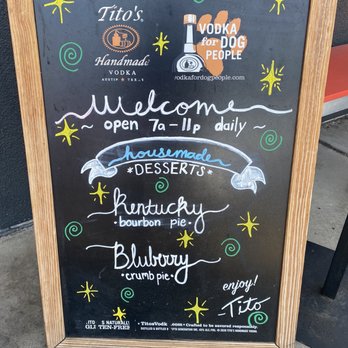 Tito's
Handmade
VODKA
AUSTIN TEXAS
VODKA
for DOG
PEOPLE
vodkafordogpeople.com
Welcome
~ open 7a-11p daily ~
housemade
*DESSERTS*
Kentucky
• bourbon pie •
Bluberry
• crumb pie •
enjoy!
-Tito
TitosVodka.com • Crafted to be savored responsibly.